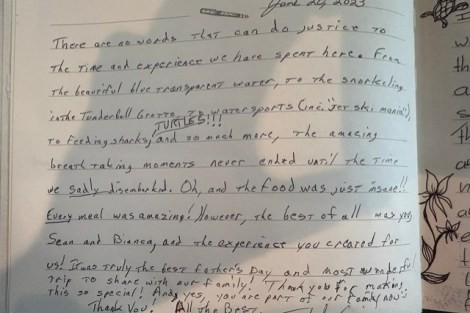 June 20, 2023
There are no words that can do justice to
the time and experience we have spent here. From
the beautiful blue transparent water, to the snorkeling
in the Thunderball Grotto, to watersports (inc. "Jet ski mania"),
TURTLES!!!
to feeding sharks, and so much more, the amazing
breath taking moments never ended until the time
we sadly disembarked. Oh, and the food was just insane!!
Every meal was amazing! However, the best of all was you,
Sean and Bianca, and the experience you created for
us! It was truly the best Father's Day and most wonderful
trip to share with our family! Thank you for making
this so special! And, yes, you are part of our family now!
Thank You! All The Best,